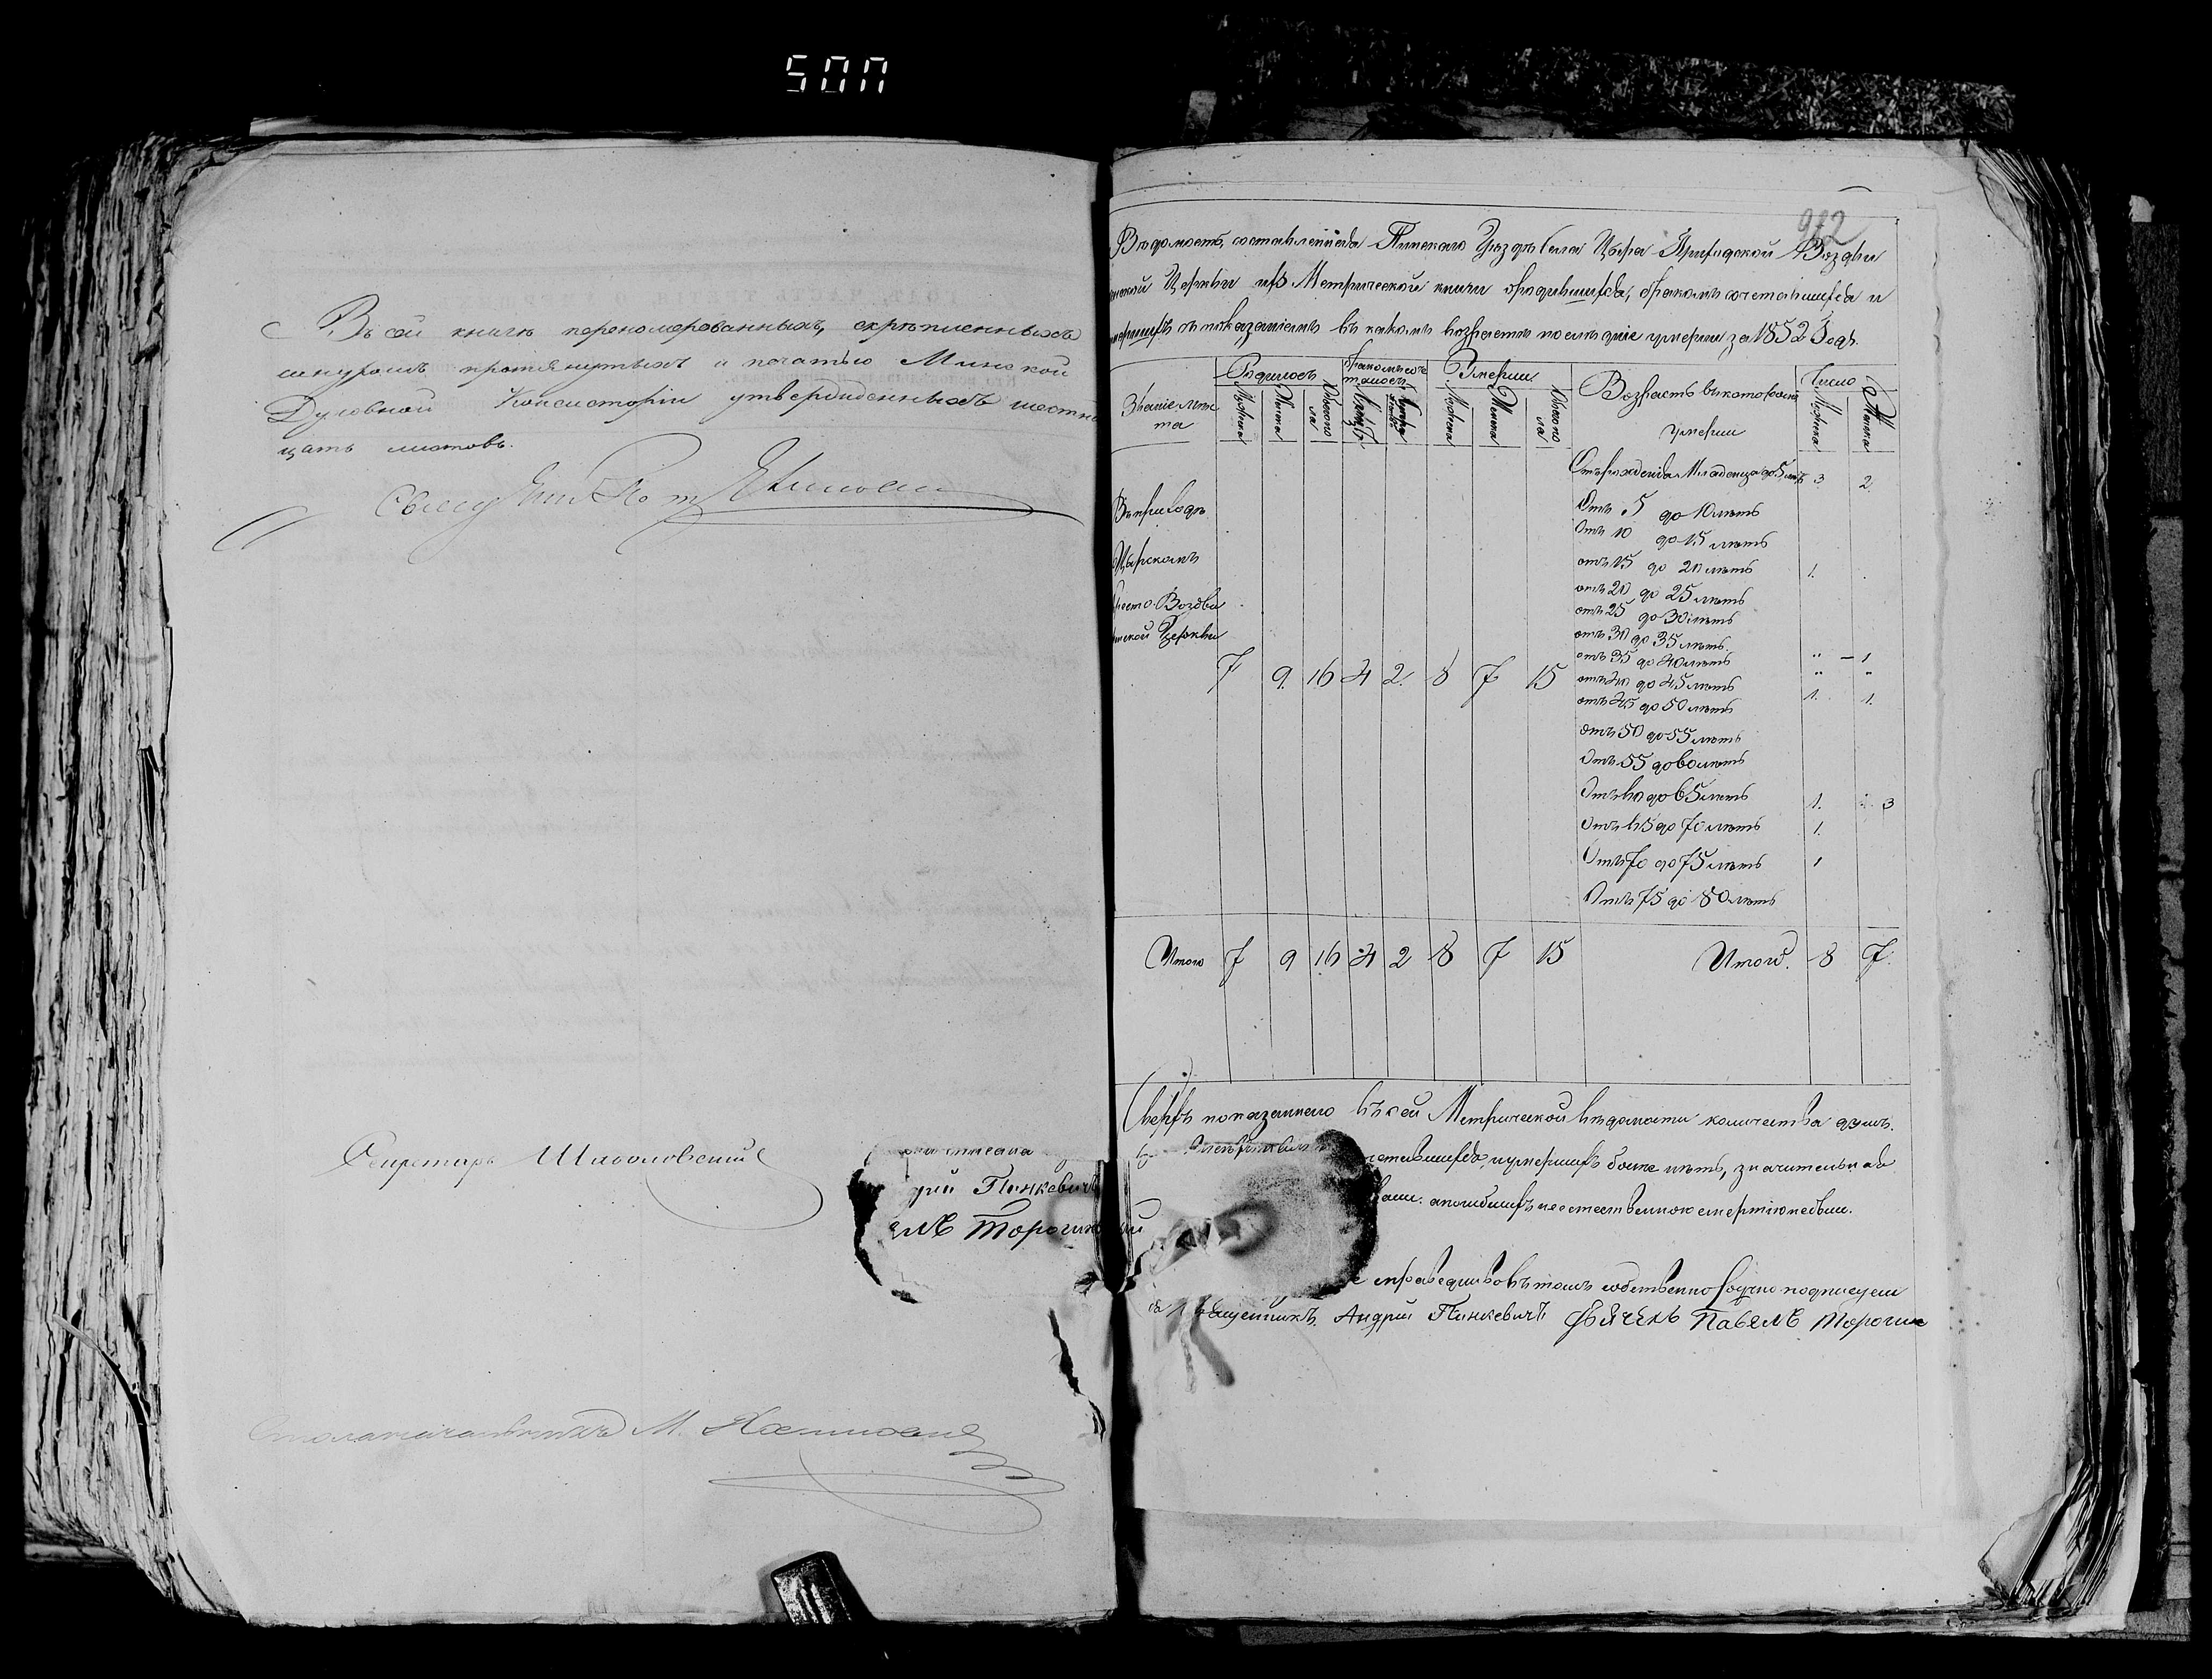 500
Въ сей книгѣ перенομерованныхъ, скрѣпленныхъ
шнуромъ протянутыхъ и печатью Минской
Духовной Консисторіи утвержденныхъ шестнад
цать листовъ.
Секретарь
писана
дрій Пинкевичъ
елъ Торогин
Столоначальникъ М.
912
Вѣдомость, составленная Пинскаго Уѣзда села Цыра Приходской Воздви
женской Церкви изъ Метрической книги о родившихся, бракомъ сочетавшихся и
умершихъ съ показаніемъ въ какомъ возрастѣ послѣдніе умерли за 1852 годъ.
Званіе мѣс
та
Родилось
Мужеска
Женска
Обоего по
ла
Бракомъ соче
талось
Умерли
Мужеска
Женска
Обоего по
ла
Возрастъ въ которомъ
умерли
Число
Мужеска
Женска
Отъ рожденія Младенца до 5 лѣтъ 3 2
Отъ 5 до 10 лѣтъ
Отъ 10 до 15 лѣтъ
отъ 15 до 20 лѣтъ 1.
отъ 20 до 25 лѣтъ
отъ 25 до 30 лѣтъ
отъ 30 до 35 лѣтъ
отъ 35 до 40 лѣтъ " — 1
отъ 40 до 45 лѣтъ " "
отъ 45 до 50 лѣтъ 1. 1.
отъ 50 до 55 лѣтъ
Отъ 55 до 60 лѣтъ
Отъ 60 до 65 лѣтъ 1. 3
Отъ 65 до 70 лѣтъ 1.
Отъ 70 до 75 лѣтъ 1
Отъ 75 до 80 лѣтъ
Въ приходѣ
Цырскомъ
Кресто-Воздви
женской Церкви
7 9. 16 4 2. 8 7 15
Итого 7 9 16 4 2 8 7 15 Итого. 8 7.
Сверхъ показаннаго въ сей Метрической вѣдомости количества душъ.
сочетавшихся, и умершихъ болѣе нѣтъ, значительная
а погибшихъ неестественною смертію небыло.
справедливо въ томъ собственноручно подписуемся
Священникъ Андрій Пинкевичъ Дьячекъ Павелъ Торогин